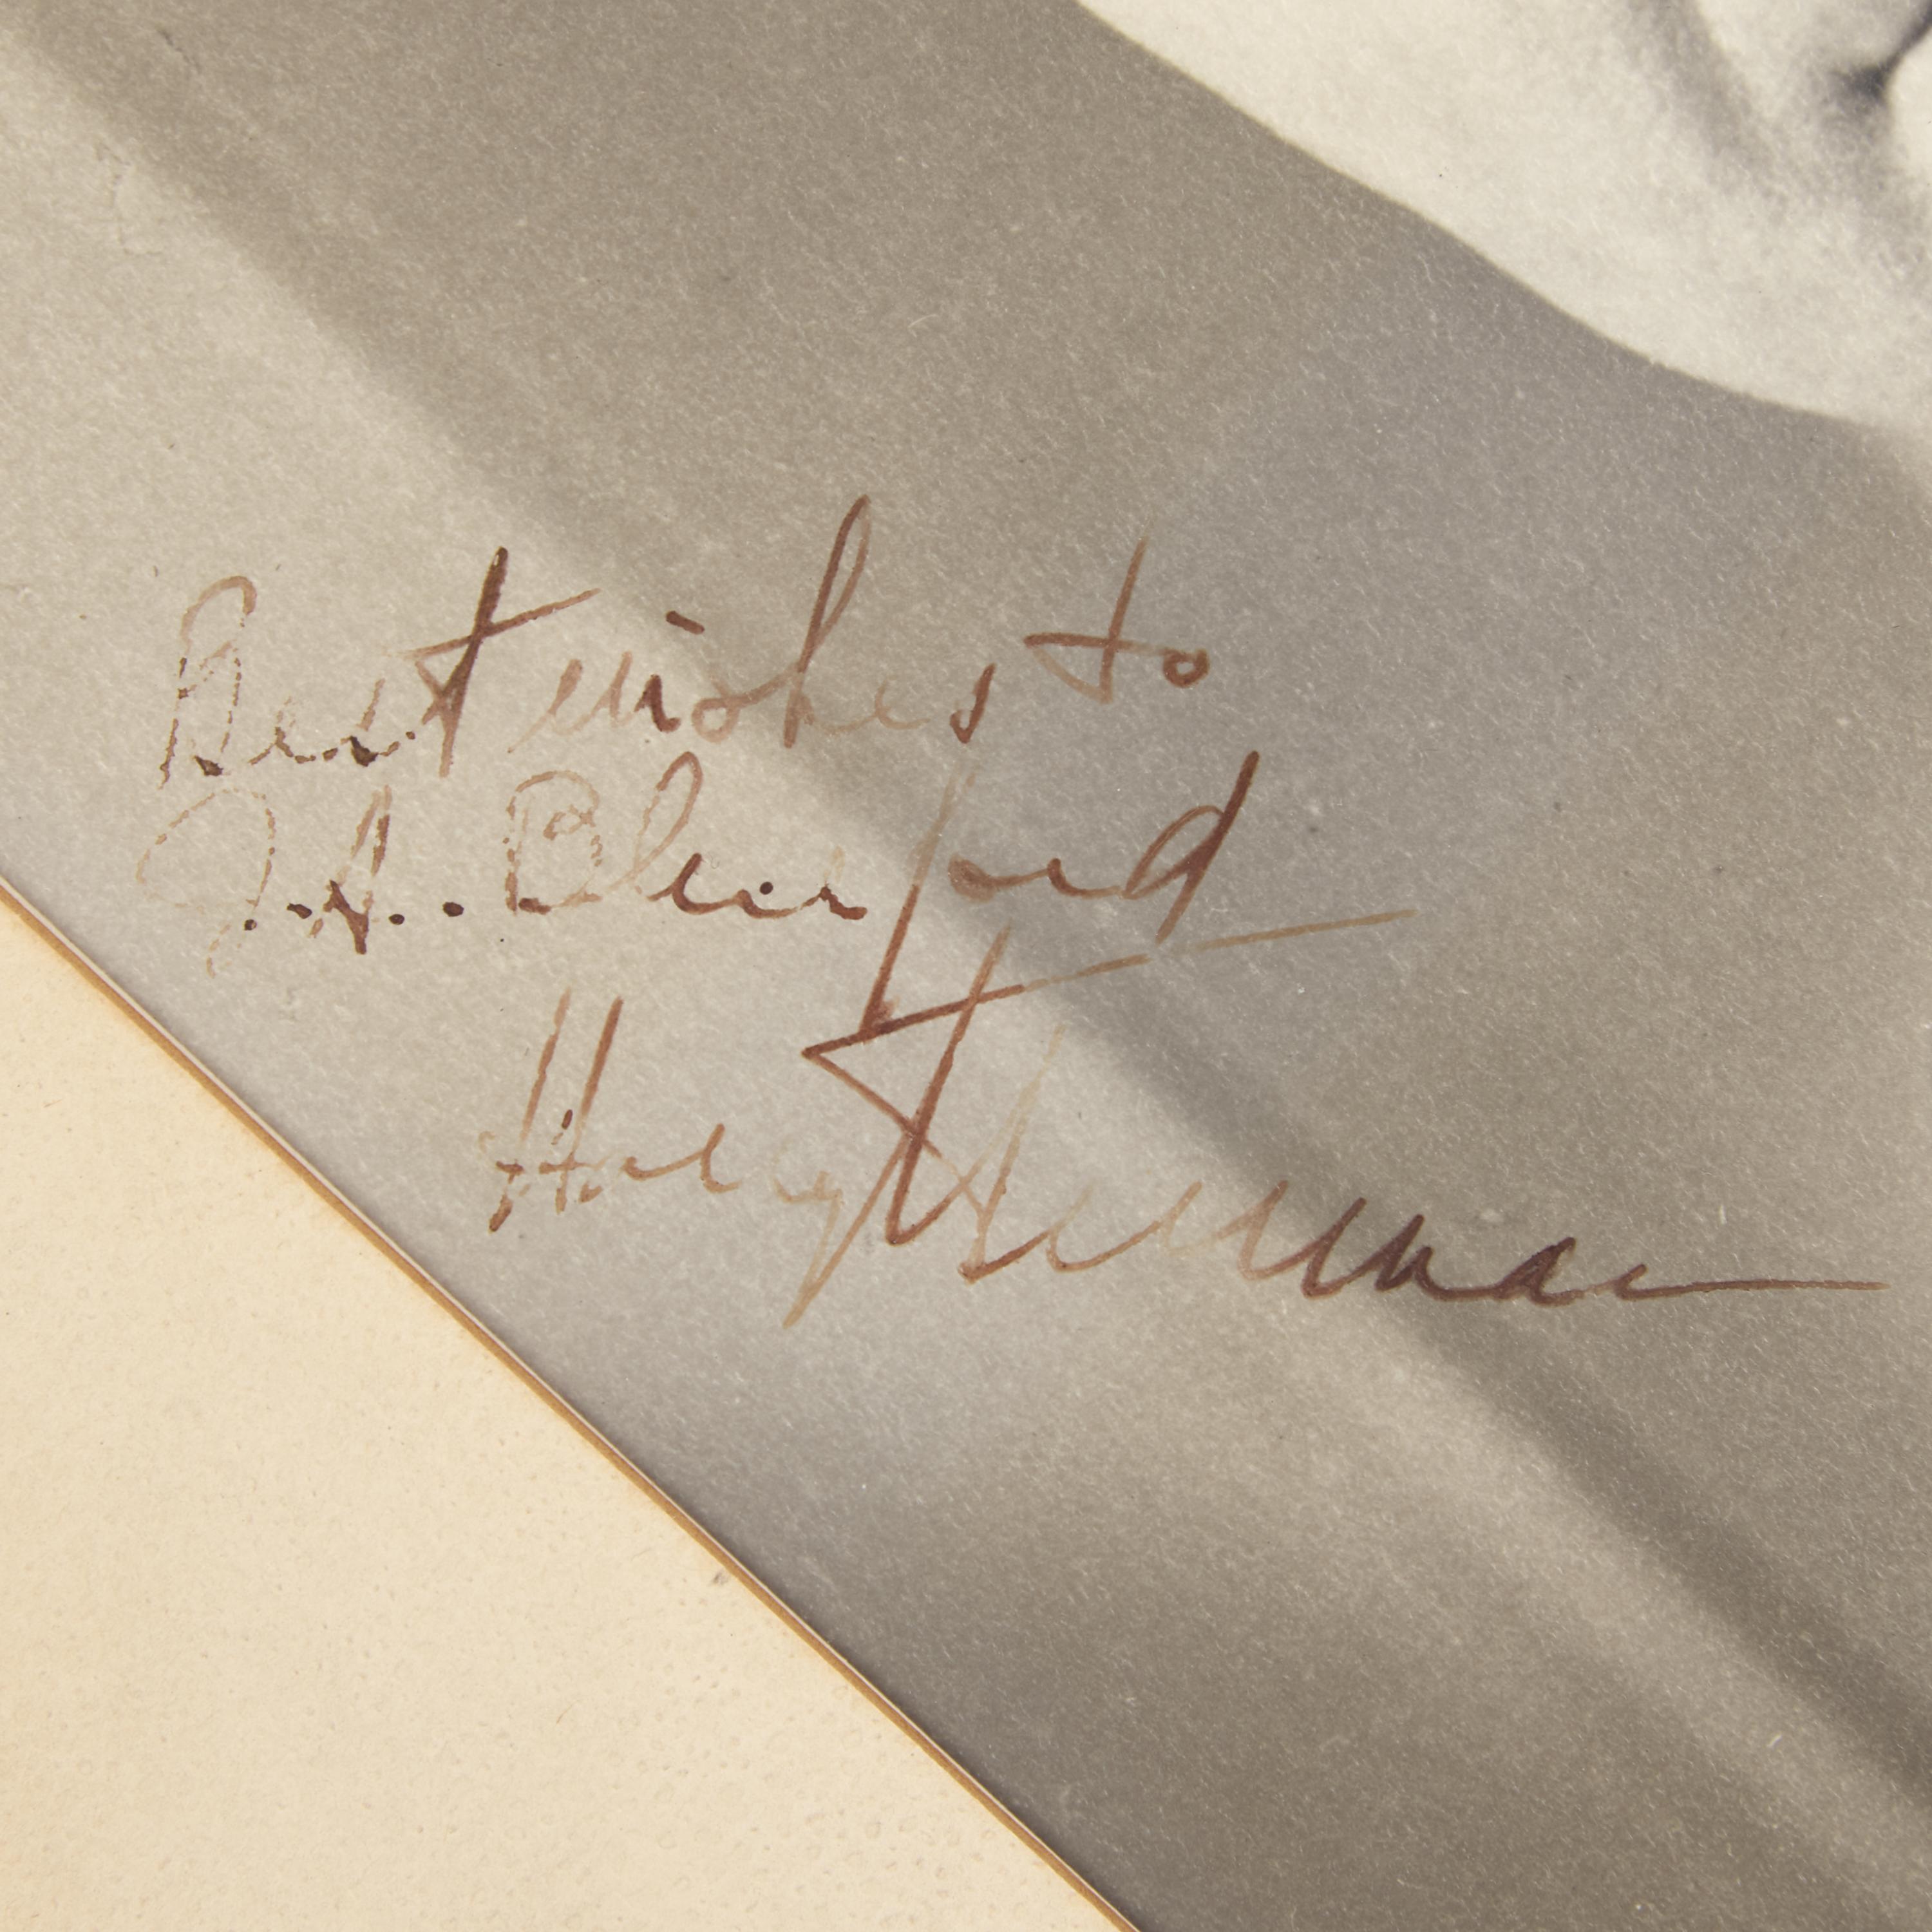 Best wishes to
J.A. Bluford
Harry Truman